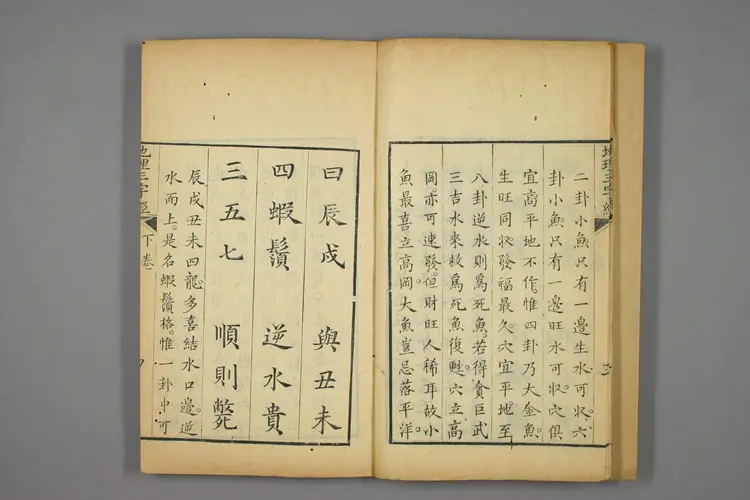 二卦小魚只有一邊生水可收。六
卦小魚只有一邊旺水可收。穴俱
宜高平地不作。惟四卦乃大金魚。
生旺同收發福最久。穴宜平地至
八卦逆水則爲死魚。若得貪巨武
三吉水來救爲死魚復甦。穴立高
岡。亦可速發。但財旺人稀耳故小
魚最喜立高岡。大魚豈忌落平洋。
曰辰戌 與丑未
四蝦鬚 逆水貴
三五七 順則斃
辰戌丑未四龍多喜結水口邊。逆
水而上。是名蝦鬚格。惟一卦中可
地理三字經 下卷